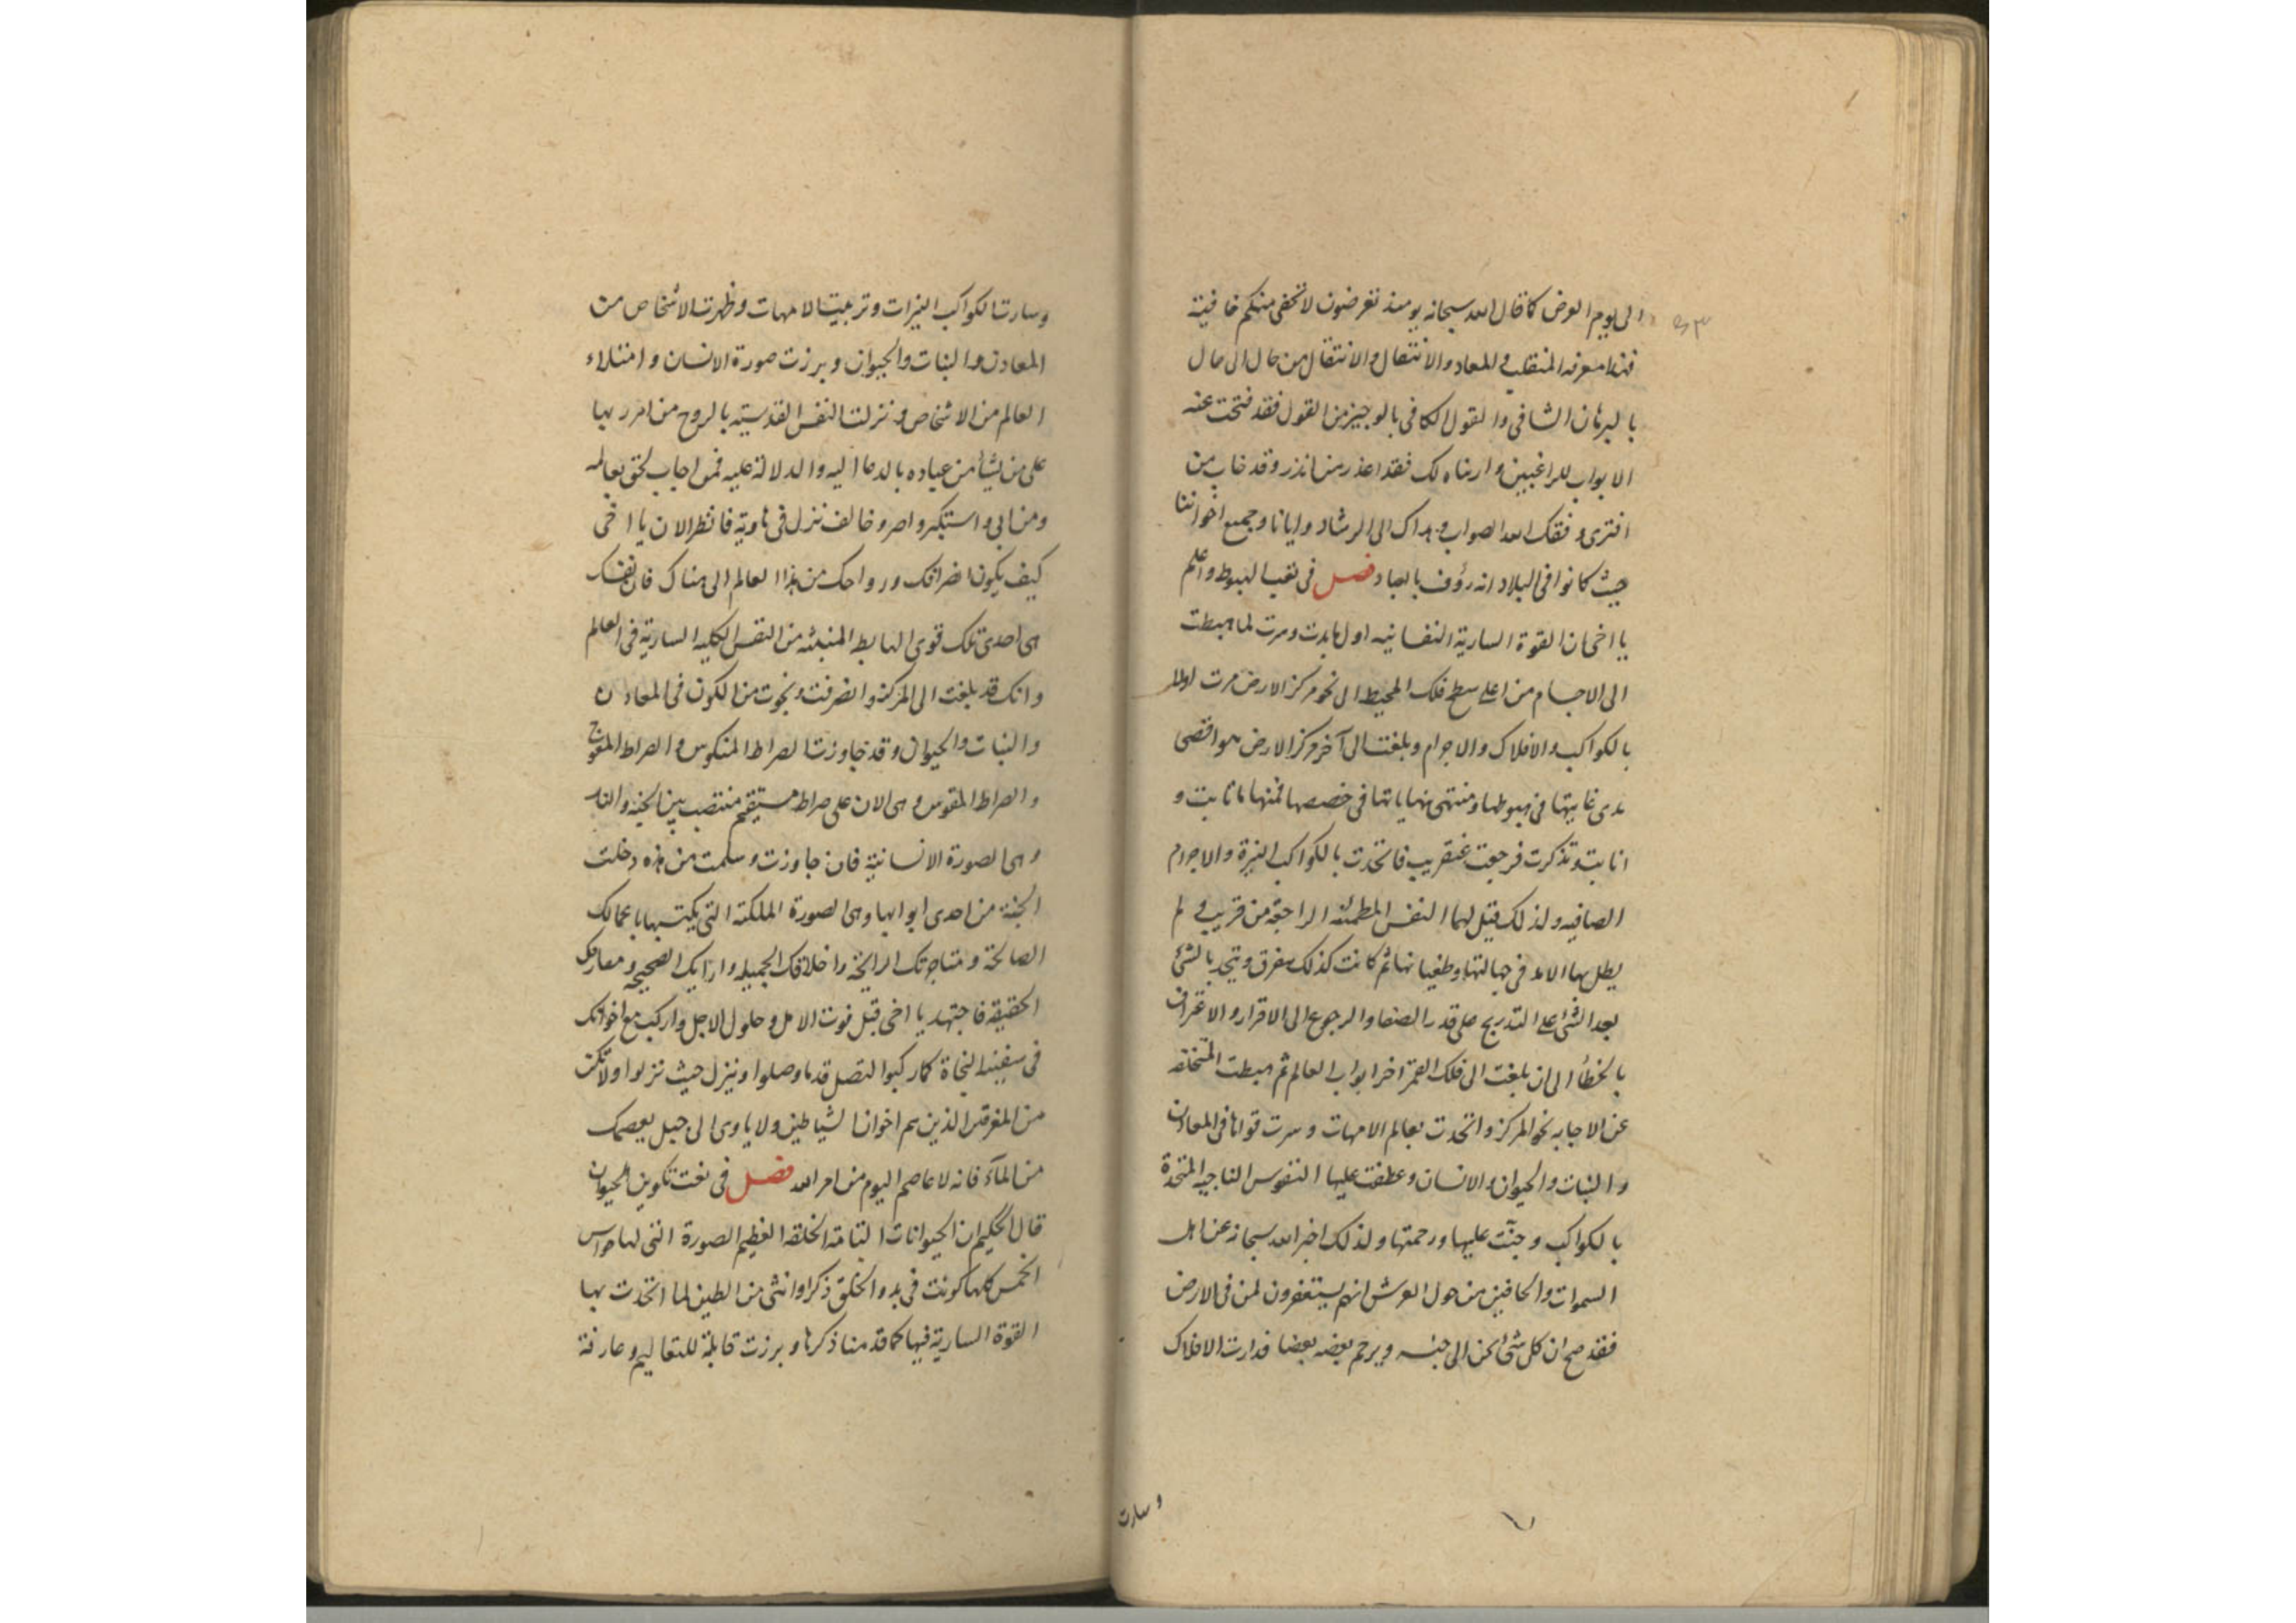 الى يوم العرض كما قال الله سبحانه يومئذ تعرضون لا تخفى منكم خافية
فهذا معرفة المنقلب والمعاد والانتقال من حال الى حال
بالبرهان الشافى والقول الكافى بالوجيز من القول فقد فتحت عنه
الابواب للراغبين وارناه لك فقد اعذر من انذر وقد خاب من
افترى وفقك الله الصواب وهداك الى الرشاد وايانا وجميع اخواننا
حيث كانوا فى البلاد انه رؤف بالعباد فصل فى الهبوط واعلم
يا اخى ان القوة السارية النفسانيه اول ما بدت وسرت لما هبطت
الى الاجسام من اعلى سطح فلك المحيط الى نحو مركز الارض مرت اولا
بالكواكب والافلاك والاجرام وبلغت الى آخر مركز الارض هو اقصى
مدى غايتها فى هبوطها ومنتهى نهاياتها فى فمنها ما ثابت و
انابت وتذكرت فرجعت عنقريب فاتحدت بالكواكب النيرة والاجرام
الصافيه ولذلك قيل لها النفس المطمئنه الراجعة من قريب ولم
يطل بها الامد فى جهالتها وطغيانها ثم كانت كذلك تفرق وتتحد بالشئ
بعد الشئ على التدريج على قدر الصفا والرجوع الى الاقرار والاعتراف
بالخطأ الى ان بلغت الى فلك القمر اخر ابواب العالم ثم هبطت المتخلفه
عن الاجابه نحو المركز واتحدت بعالم الامهات وسرت قواها فى المعادن
والنبات والحيوان والانسان وعطفت عليها النفوس الناجيه المتحدة
بالكواكب وحنّت عليها ورحمتها ولذلك اخبر الله سبحانه عن اهل
السموات والحافين من حول العرش انهم يستغفرون لمن فى الارض
فقد صح ان كل شئ يحن الى جنسه ويرحم بعضه بعضا فدارت الافلاك
وسارت
وسارت الكواكب النيرات وتربيت الامهات وظهرت الاشخاص من
المعادن والنبات والحيوان وبرزت صورة الانسان وامتلاء
العالم من الاشخاص ونزلت النفس القدسيته بالروح من امر ربها
على من يشأ من عباده بالدعا اليه والدلالة عليه فمن اجاب لحق بعالمه
ومن ابى واستكبر واصر وخالف نزل فى هاوية فانظر الان يا اخى
كيف يكون انصرافك ورواحك من هذا العالم الى هناك فان نفسك
هى احدى تلك قوى الهابطه المنبثه من النفس الكليه السارية فى العالم
وانك قد بلغت الى المركز وانصرفت ونجوت من الكون فى المعادن
والنبات والحيوان وقد جاوزت الصراط المنكوس والصراط المعوج
والصراط المقوس وهى الان على صراط مستقيم منتصب بين الجنه والنار
وهى الصورة الانسانية فان جاوزت وسلمت من هذه دخلت
الجنة من احدى ابوابها وهى الصورة الملكية التى يكتسبها باعمالك
الصالحة ومتاجرتك الرابحة واخلاقك الجميله وارايك الصحيحه ومعارفك
الحقيقه فاجتهد يا اخى قبل فوت الامل وحلول الاجل واركب مع اخوانك
فى سفينه النجاة كما ركبوا لتصل قد ما وصلوا وتنزل حيث نزلوا ولا تكن
من المغرقين الذين هم اخوان الشياطين ولا ياوى الى جبل يعصمك
من المآء فانه لا عاصم اليوم من امر الله فصل فى نعت تكوين الحيوان
قال الحكيم ان الحيوانات التامة الخلقه العظيم الصورة التى لها حواس
الخمس كلها كونت فى بدو الخلق ذكرا وانثى من الطين لما اتحدت بها
القوة السارية فيها كما قد منا ذكرها وبرزت قابلة للتعاليم وعارفة